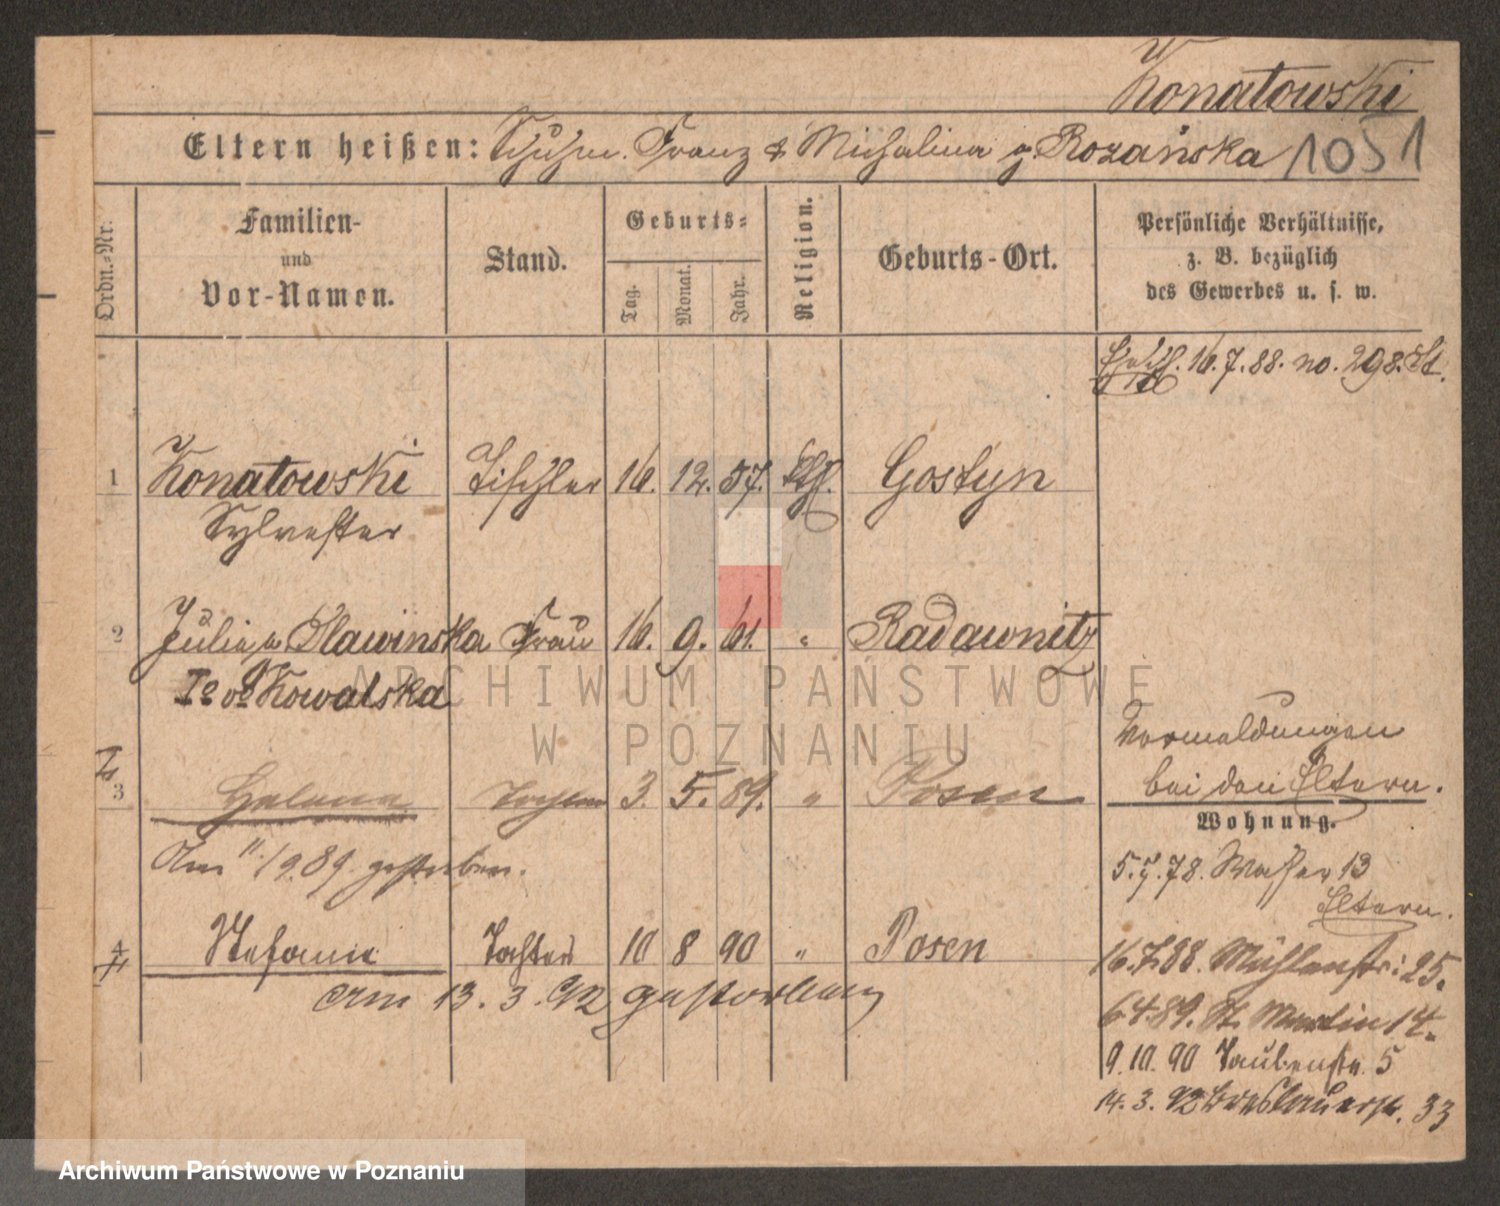 Konatowski
Eltern heißen: Schuhm. Franz & Michalina g. Rozańska 1051
Ordn.-Nr.
Familien-
und
Vor-Namen.
Stand.
Geburts-
Tag.
Monat.
Jahr.
Religion.
Geburts-Ort.
Persönliche Verhältnisse,
z. B. bezüglich
des Gewerbes u. s. w.
16.7.88. no. 298. St.
1 Konatowski Tischler 16. 12. 57. kth. Gostyn
Sylvester
2 Julie, g. Slawinska Frau 16. 9. 61. " Radawnitz
Io vo Kowalska
Vormeldungen
bei den Eltern.
3 Helene Tochter 3. 5. 89. " Posen
Am 11./9.89. gestorben.
Wohnung.
5.7.78. Wasser 13
Eltern.
4 Stefanie Tochter 10 8 90 " Posen
am 13. 3. 92 gestorben
16.7.88. Mühlenstr: 25.
6.4.89. St. Martin 14.
9.10.90 Taubenstr. 5
14.3.92 Breslauerstr. 33
ARCHIWUM PAŃSTWOWE
W POZNANIU
Archiwum Państwowe w Poznaniu